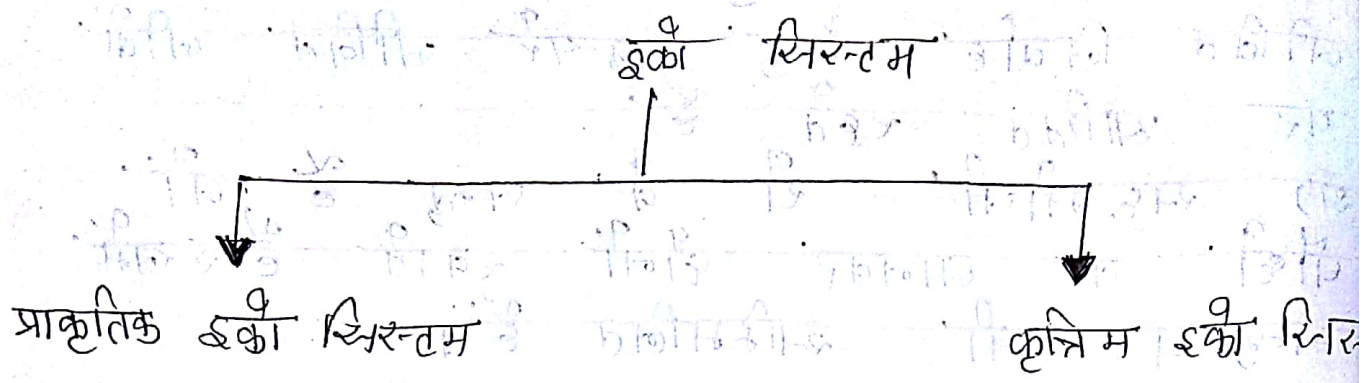 इको सिस्टम
प्राकृतिक इको सिस्टम कृत्रिम इको